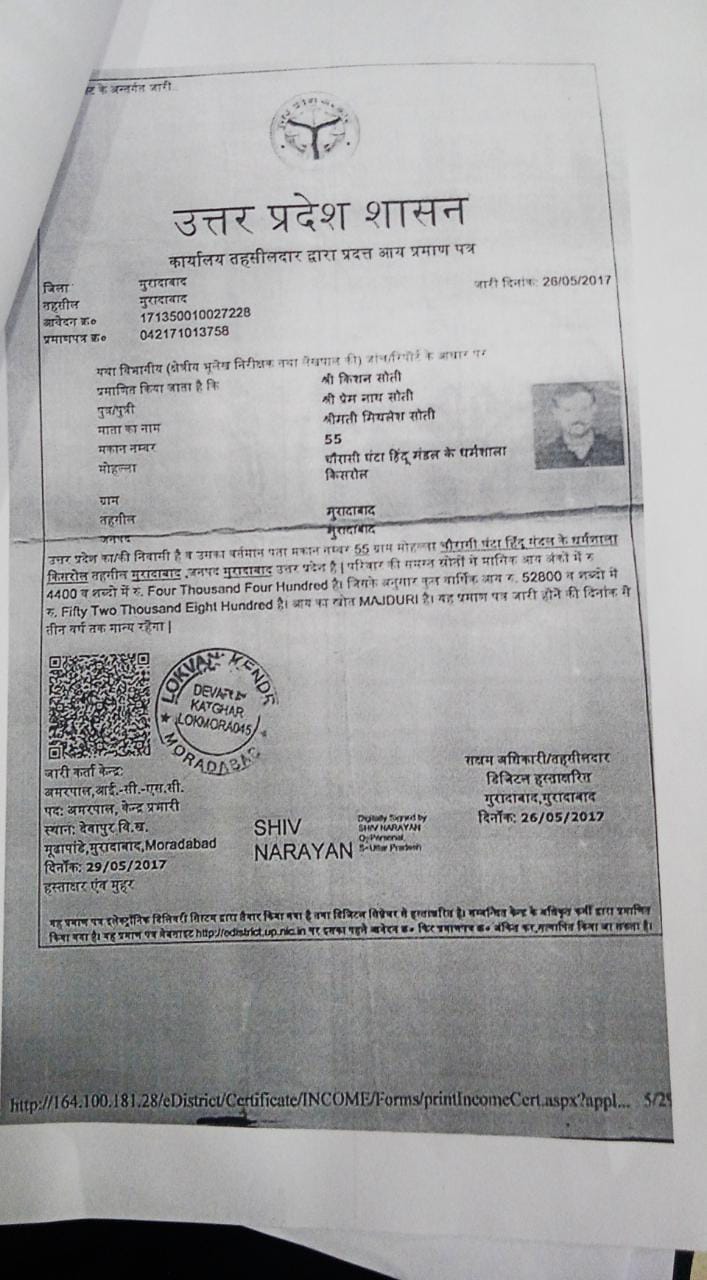 के अन्तर्गत जारी
उत्तर प्रदेश शासन
कार्यालय तहसीलदार द्वारा प्रदत्त आय प्रमाण पत्र
जिला मुरादाबाद जारी दिनांक: 26/05/2017
तहसील मुरादाबाद
आवेदन क्र० 171350010027228
प्रमाणपत्र क्र० 042171013758
यथा विभागीय (क्षेत्रीय भूलेख निरीक्षक तथा लेखपाल की) जांच/रिपोर्ट के आधार पर
प्रमाणित किया जाता है कि श्री किशन सोती
पुत्र/पुत्री श्री प्रेम नाथ सोती
माता का नाम श्रीमती मिथलेश सोती
मकान नम्बर 55
मोहल्ला चौरासी घंटा हिंदू मंडल के धर्मशाला
किसरोल
ग्राम
तहसील मुरादाबाद
जनपद मुरादाबाद
उत्तर प्रदेश का/की निवासी है व उसका वर्तमान पता मकान नम्बर 55 ग्राम मोहल्ला चौरासी घंटा हिंदू मंडल के धर्मशाला
किसरोल तहसील मुरादाबाद ,जनपद मुरादाबाद उत्तर प्रदेश है | परिवार की समस्त स्रोतों से मासिक आय अंकों में रु
4400 व शब्दो में रु. Four Thousand Four Hundred है। जिसके अनुसार कुल वार्षिक आय रु. 52800 व शब्दो में
रु. Fifty Two Thousand Eight Hundred है। आय का स्रोत MAJDURI है। यह प्रमाण पत्र जारी होने की दिनांक से
तीन वर्ष तक मान्य रहेगा |
LOKVANI KENDR
DEVAPUR
KATGHAR
LOKMORA045
MORADABAD
जारी कर्ता केन्द्र:
अमरपाल,आई.-सी.-एस.सी.
पद: अमरपाल, केन्द्र प्रभारी
स्थान: देवापुर,वि.ख.
मूढापांडे,मुरादाबाद,Moradabad
दिनाँक: 29/05/2017
हस्ताक्षर एंव मुहर
सक्षम अधिकारी/तहसीलदार
डिजिटल हस्ताक्षरित
मुरादाबाद,मुरादाबाद
दिनाँक: 26/05/2017
SHIV
NARAYAN
Digitally Signed by
SHIV NARAYAN
O=Personal,
S=Uttar Pradesh
यह प्रमाण पत्र इलेक्ट्रॉनिक डिलिवरी सिस्टम द्वारा तैयार किया गया है तथा डिजिटल सिग्नेचर से हस्ताक्षरित है। सम्बन्धित केन्द्र के अधिकृत कर्मी द्वारा प्रमाणित
किया गया है। यह प्रमाण पत्र वेबसाइट http://edistrict.up.nic.in पर इसका पहले आवेदन क्र० फिर प्रमाणपत्र क्र० अंकित कर,सत्यापित किया जा सकता है।
http://164.100.181.28/eDistrict/Certificate/INCOME/Forms/printIncomeCert.aspx?appl... 5/29